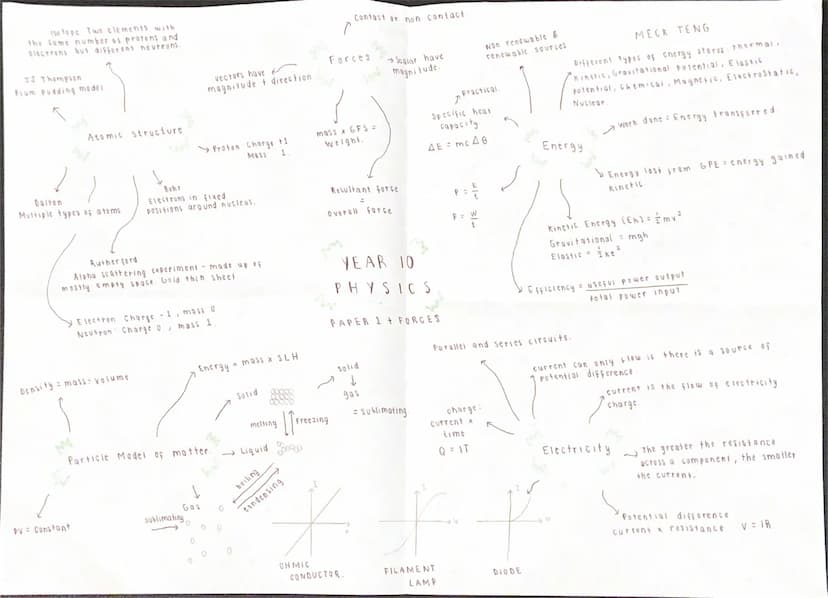 Isotope Two elements with
the same number of protons and
electrons but different neutrons.
JJ Thompson
Plum pudding model
Atomic structure
Proton Charge +1
Mass 1.
Dalton
Multiple types of atoms
Bohr
Electrons in fixed
positions around nucleus.
Rutherford
Alpha scattering experiment - made up of
mostly empty space. Gold thin sheet
Electron Charge -1, mass 0
Neutron: Charge 0, mass 1.
Contact or non contact
Forces
Scalar have
magnitude.
Vectors have
magnitude + direction
mass x GFS =
Weight.
Resultant force
=
Overall force
YEAR 10
PHYSICS
PAPER 1 + FORCES
Non renewable &
renewable sources
MECK TENG
Different types of energy stores thermal,
Kinetic, Gravitational potential, Elastic
potential, Chemical, Magnetic, Electrostatic,
Nuclear.
Practical.
Specific heat
capacity
ΔE = mcΔθ
Energy
Work done = Energy transferred
Energy lost from GPE = energy gained
kinetic.
P = E/t
P = W/t
Kinetic Energy (Ek) = ½mv²
Gravitational = mgh
Elastic = ½ke²
Efficiency = useful power output
total power input
Density = mass ÷ volume
Energy = mass x SLH
Particle Model of matter
Solid
melting
Freezing
Liquid
boiling
condensing
Gas
sublimating
solid
gas
= sublimating
PV = Constant
I
V
OHMIC
CONDUCTOR.
I
V
FILAMENT
LAMP
I
V
DIODE
Parallel and series circuits.
current can only flow is there is a source of
potential difference.
current is the flow of electricity
charge.
charge:
current x
time
Q = IT
Electricity
The greater the resistance
across a component, the smaller
the current.
Potential difference
current x resistance V = IR